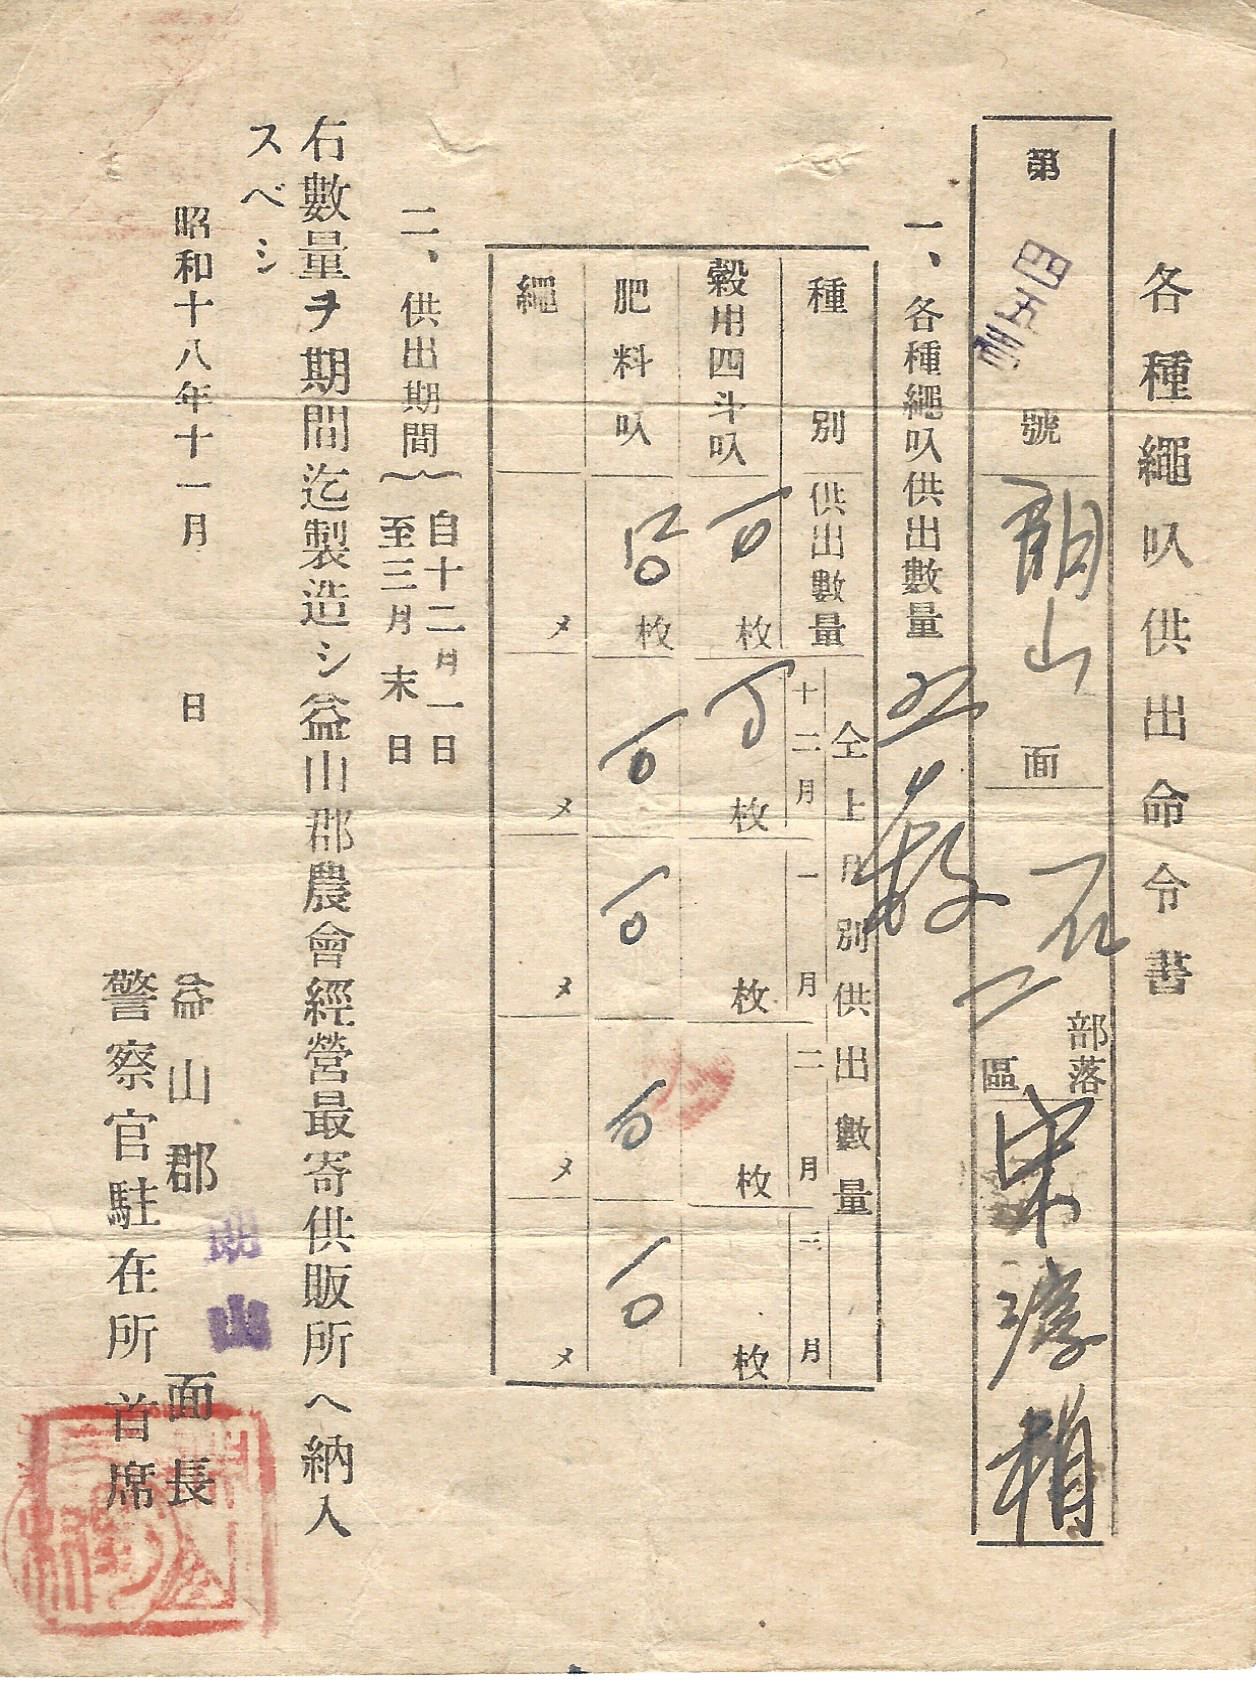 各種繩叺供出命令書
第 號 朗山面 二區 部落 宋淳相
一、各種繩叺供出數量
種別 供出數量 仝上月別供出數量
十二月 一月 二月 三月
穀用四斗叺 百枚 百枚 枚 枚 枚
肥料叺 枚 百 百 百 百
繩 〆 〆 〆 〆 〆
二、供出期間
自十二月一日
至三月末日
右數量ヲ期間迄製造シ益山郡農會經營最寄供販所ヘ納入
スベシ
昭和十八年十一月 日
益山郡朗山面長
警察官駐在所首席